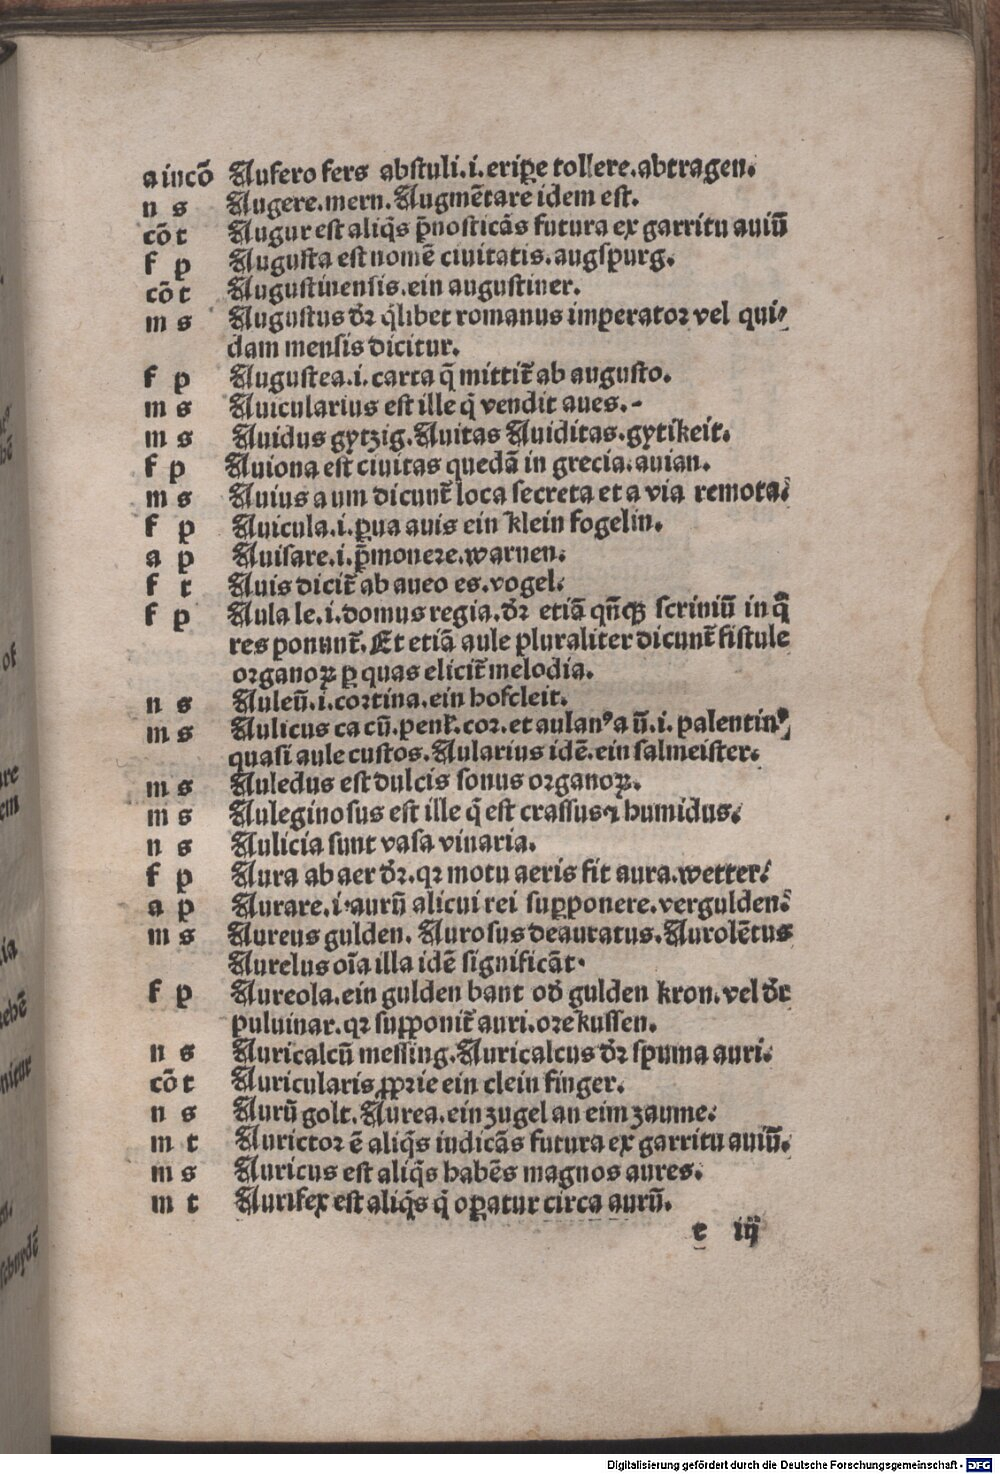 a incō Aufero fers abstuli.i.eriꝑe tollere.abtragen.
n s Augere.mern.Augmētare idem est.
cō t Augur est aliq̇s p̄nosticās futura ex garritu auiū
f p Augusta est nomē ciuitatis.augspurg.
cō t Augustinensis.ein augustiner.
m s Augustus dr̄ q̇libet romanus imperator vel qui⸗
dam mensis dicitur.
f p Augustea.i.carta q̄ mittit᷑ ab augusto.
m s Auicularius est ille q̇ vendit aues.
m s Auidus gytzig.Auitas Auiditas.gytikeit.
f p Auiona est ciuitas quedā in grecia.auian.
m s Auius a um dicunt᷑ loca secreta et a via remota.
f p Auicula.i.ꝑua auis ein klein fogelin.
a p Auisare.i.p̄monere.warnen.
f t Auis dicit᷑ ab aueo es.vogel.
f p Aula le.i.domus regia.dr̄ etiā qn̄qꝫ scriniū in q̄
res ponunt᷑.Et etiā aule pluraliter dicunt᷑ fistule
organoꝝ ꝑ quas elicit᷑ melodia.
n s Auleū.i.cortina.ein hofcleit.
m s Aulicus ca cū.penl᷑.cor.et aulanꝰ a ū.i.palentinꝰ
quasi aule custos.Aularius idē.ein salmeister.
m s Auledus est dulcis sonus organoꝝ.
m s Auleginosus est ille q̇ est crassus ⁊ humidus.
n s Aulicia sunt vasa vinaria.
f p Aura ab aer dr̄.qꝛ motu aeris fit aura.wetter.
a p Aurare.i.aurū alicui rei supponere.vergulden.
m s Aureus gulden. Aurosus deauratus.Aurolētus
Aurelus oīa illa idē significāt.
f p Aureola.ein gulden bant od̄ gulden kron.vel dr̄
puluinar.qꝛ supponit᷑ auri.orekussen.
n s Auricalcū messing.Auricalcus dr̄ spuma auri.
cō t Auricularis ꝓprie ein clein finger.
n s Aurū golt.Aurea.ein zugel an eim zaume.
m t Aurictor ē aliq̇s iudicās futura ex garritu auiū.
m s Auricus est aliq̇s habēs magnos aures.
m t Aurifex est aliq̇s q̇ oꝑatur circa aurū.
c iij
Digitalisierung gefördert durch die Deutsche Forschungsgemeinschaft - DFG